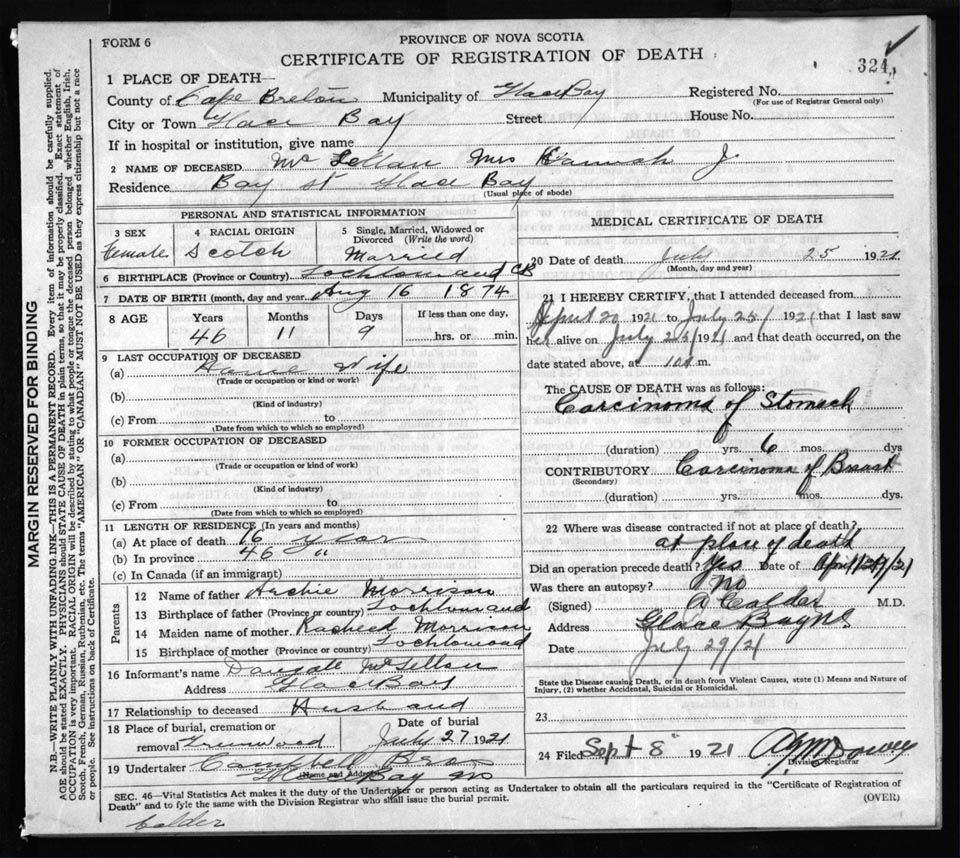 FORM 6
PROVINCE OF NOVA SCOTIA
CERTIFICATE OF REGISTRATION OF DEATH
324
1 PLACE OF DEATH—
County of Cape Breton Municipality of Glace Bay Registered No.
(For use of Registrar General only)
City or Town Glace Bay Street House No.
If in hospital or institution, give name
2 NAME OF DECEASED Mc Lellan Mrs Hannah J.
Residence Bay st Glace Bay
(Usual place of abode)
PERSONAL AND STATISTICAL INFORMATION
3 SEX 4 RACIAL ORIGIN 5 Single, Married, Widowed or Divorced (Write the word)
Female Scotch Married
6 BIRTHPLACE (Province or Country) Lochlomand CB
7 DATE OF BIRTH (month, day and year) Aug 16 1874
8 AGE Years Months Days If less than one day,
46 11 9 hrs. or min.
9 LAST OCCUPATION OF DECEASED
(a) House Wife
(Trade or occupation or kind or work)
(b)
(Kind of industry)
(c) From to
(Date from which to which so employed)
10 FORMER OCCUPATION OF DECEASED
(a)
(Trade or occupation or kind of work)
(b)
(Kind of industry)
(c) From to
(Date from which to which so employed)
11 LENGTH OF RESIDENCE (In years and months)
(a) At place of death 16 year
(b) In province 46 "
(c) In Canada (if an immigrant)
Parents
12 Name of father Archie Morrison
13 Birthplace of father (Province or country) Lochlomand
14 Maiden name of mother Morrison
15 Birthplace of mother (Province or country) Lochlomond
16 Informant's name McLellan
Address Glace Bay
17 Relationship to deceased Husband
18 Place of burial, cremation or removal Greenwood
Date of burial July 27 1921
19 Undertaker Campbell Bros
(Name and Address) Glace Bay NS
MEDICAL CERTIFICATE OF DEATH
20 Date of death July 25 1921
(Month, day and year)
21 I HEREBY CERTIFY, that I attended deceased from
April 20 1921 to July 25/ 1921 that I last saw
her alive on July 25/1921 and that death occurred, on
date stated above, at m.
The CAUSE OF DEATH was as follows:
Carcinoma of Stomach
(duration) yrs. 6 mos. dys
CONTRIBUTORY Carcinoma of Breast
(Secondary)
(duration) yrs. mos. dys.
22 Where was disease contracted if not at place of death?
at place of death
Did an operation precede death? Yes Date of April /21
Was there an autopsy? No
(Signed) A Calder M.D.
Address Glace Bay NS
Date July 29/21
State the Disease causing Death, or in death from Violent Causes, state (1) Means and Nature of
Injury, (2) whether Accidental, Suicidal or Homicidal.
23
24 Filed Sept 8 1921
Division Registrar
SEC. 46—Vital Statistics Act makes it the duty of the Undertaker or person acting as Undertaker to obtain all the particulars required in the "Certificate of Registration of
Death" and to fyle the same with the Division Registrar who shall issue the burial permit.
(OVER)
Calder
MARGIN RESERVED FOR BINDING
N.B.—WRITE PLAINLY WITH UNFADING INK—THIS IS A PERMANENT RECORD. Every item of information should be carefully supplied.
AGE should be stated EXACTLY. PHYSICIANS should STATE CAUSE OF DEATH in plain terms, so that it may be properly classified. Exact statement of
OCCUPATION is very important. RACIAL ORIGIN will be described by stating to what people or tongue the deceased person belonged, whether English, Irish,
Scotch, French, German, Russian, Ruthenian, etc. The terms "AMERICAN" OR "CANADIAN" MUST NOT BE USED as they express citizenship but not a race
or people. See instructions on back of Certificate.